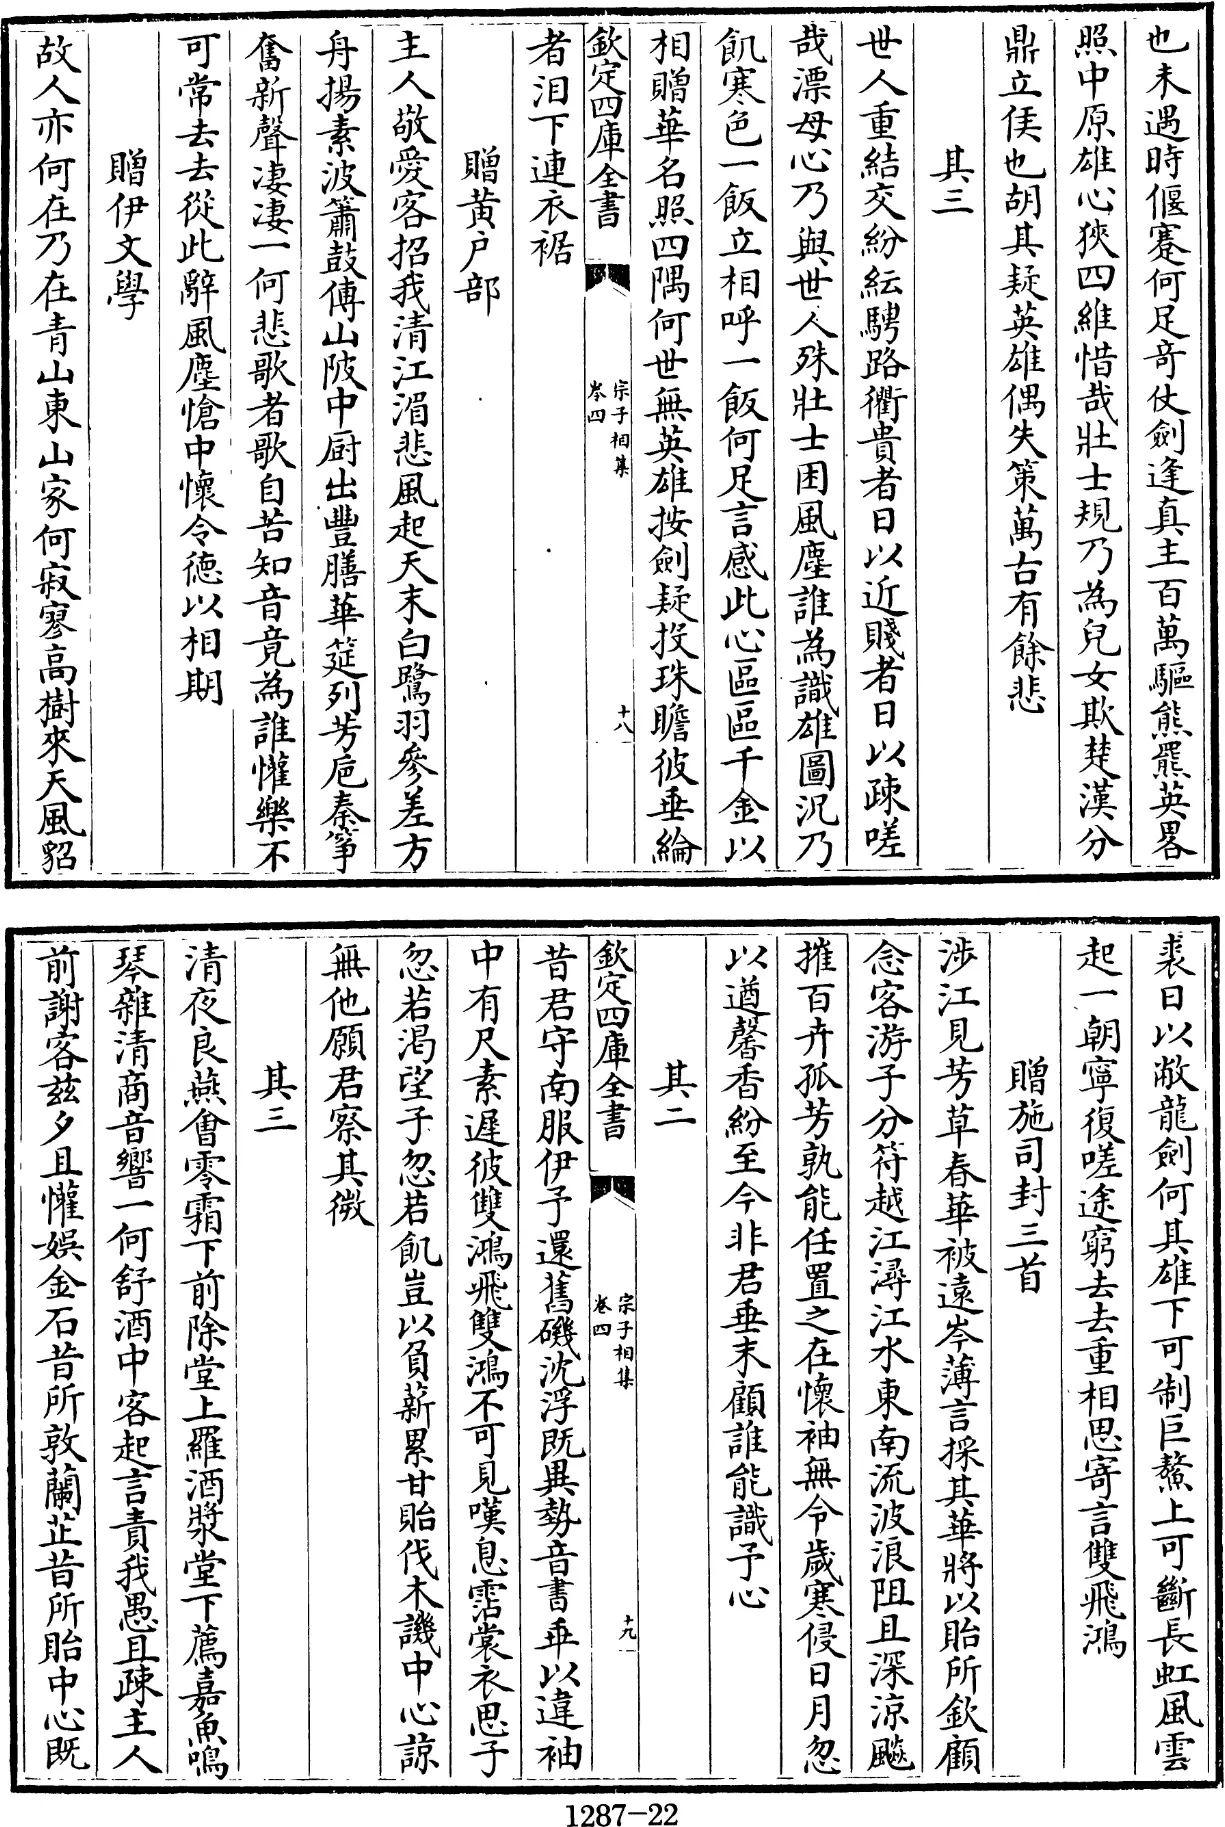 也未遇時偃蹇何足竒仗劍逢真主百萬驅熊羆英畧
照中原雄心狹四維惜哉壯士規乃為兒女欺楚漢分
鼎立俟也胡其疑英雄偶失策萬古有餘悲
其三
世人重結交紛紜騁路衢貴者日以近賤者日以疎嗟
哉漂母心乃與世人殊壯士困風塵誰為識雄圖況乃
飢寒色一飯立相呼一飯何足言感此心區區千金以
相贈華名照四隅何世無英雄按劍疑投珠瞻彼垂綸
欽定四庫全書
宗子相集
卷四
十八
者泪下連衣裾
贈黄户部
主人敬愛客招我清江湄悲風起天末白鷺羽參差方
舟揚素波簫鼓傅山陂中厨出豐膳華筵列芳巵秦筝
奮新聲凄凄一何悲歌者歌自苦知音竟為誰懽樂不
可常去去從此辭風塵愴中懷令徳以相期
贈伊文學
故人亦何在乃在青山東山家何寂寥高樹來天風貂
裘日以敝龍劍何其雄下可制巨鰲上可斷長虹風雲
起一朝寧復嗟途窮去去重相思寄言雙飛鴻
贈施司封三首
渉江見芳草春華被遠岑薄言採其華將以貽所欽顧
念客游子分符越江潯江水東南流波浪阻且深涼飈
摧百卉孤芳孰能任置之在懷袖無令歳寒侵日月忽
以遒馨香紛至今非君垂末顧誰能識予心
其二
欽定四庫全書
宗子相集
卷四
十九
昔君守南服伊予還舊磯沈浮既異勢音書垂以違袖
中有尺素遲彼雙鴻飛雙鴻不可見嘆息霑裳衣思子
忽若渇望子忽若飢豈以負薪累甘貽伐木譏中心諒
無他願君察其微
其三
清夜良燕會零霜下前除堂上羅酒漿堂下薦嘉魚鳴
琴雜清商音響一何舒酒中客起言責我愚且疎主人
前謝客兹夕且懽娱金石昔所敦蘭芷昔所貽中心既
1287-22